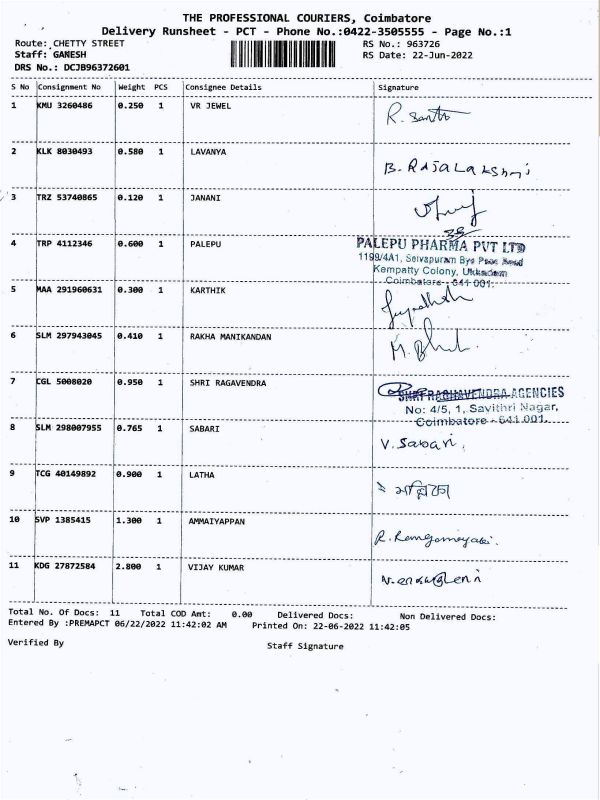 THE PROFESSIONAL COURIERS, Coimbatore
Delivery Runsheet - PCT - Phone No.:0422-3505555 - Page No.:1
Route: CHETTY STREET RS No.: 963726
Staff: GANESH RS Date: 22-Jun-2022
DRS No.: DCJB96372601
S No Consignment No Weight PCS Consignee Details Signature
1 KMU 3260486 0.250 1 VR JEWEL R. Santh
2 KLK 8030493 0.580 1 LAVANYA B. RAJALAKSHMI
3 TRZ 53740865 0.120 1 JANANI
4 TRP 4112346 0.600 1 PALEPU PALEPU PHARMA PVT LTD
1199/4A1, Selvapuram Bye Pass Road
Kempatty Colony, Ukkadam
Coimbatore - 641 001.
5 MAA 291960631 0.300 1 KARTHIK
6 SLM 297943045 0.410 1 RAKHA MANIKANDAN
7 CGL 5008020 0.950 1 SHRI RAGAVENDRA SHRI RAGHAVENDRA AGENCIES
No: 4/5, 1, Savithri Nagar,
Coimbatore - 641 001.
8 SLM 298007955 0.765 1 SABARI V. Sabari
9 TCG 40149892 0.900 1 LATHA
10 SVP 1385415 1.300 1 AMMAIYAPPAN
11 KDG 27872584 2.800 1 VIJAY KUMAR
Total No. Of Docs: 11 Total COD Amt: 0.00 Delivered Docs: Non Delivered Docs:
Entered By :PREMAPCT 06/22/2022 11:42:02 AM Printed On: 22-06-2022 11:42:05
Verified By Staff Signature